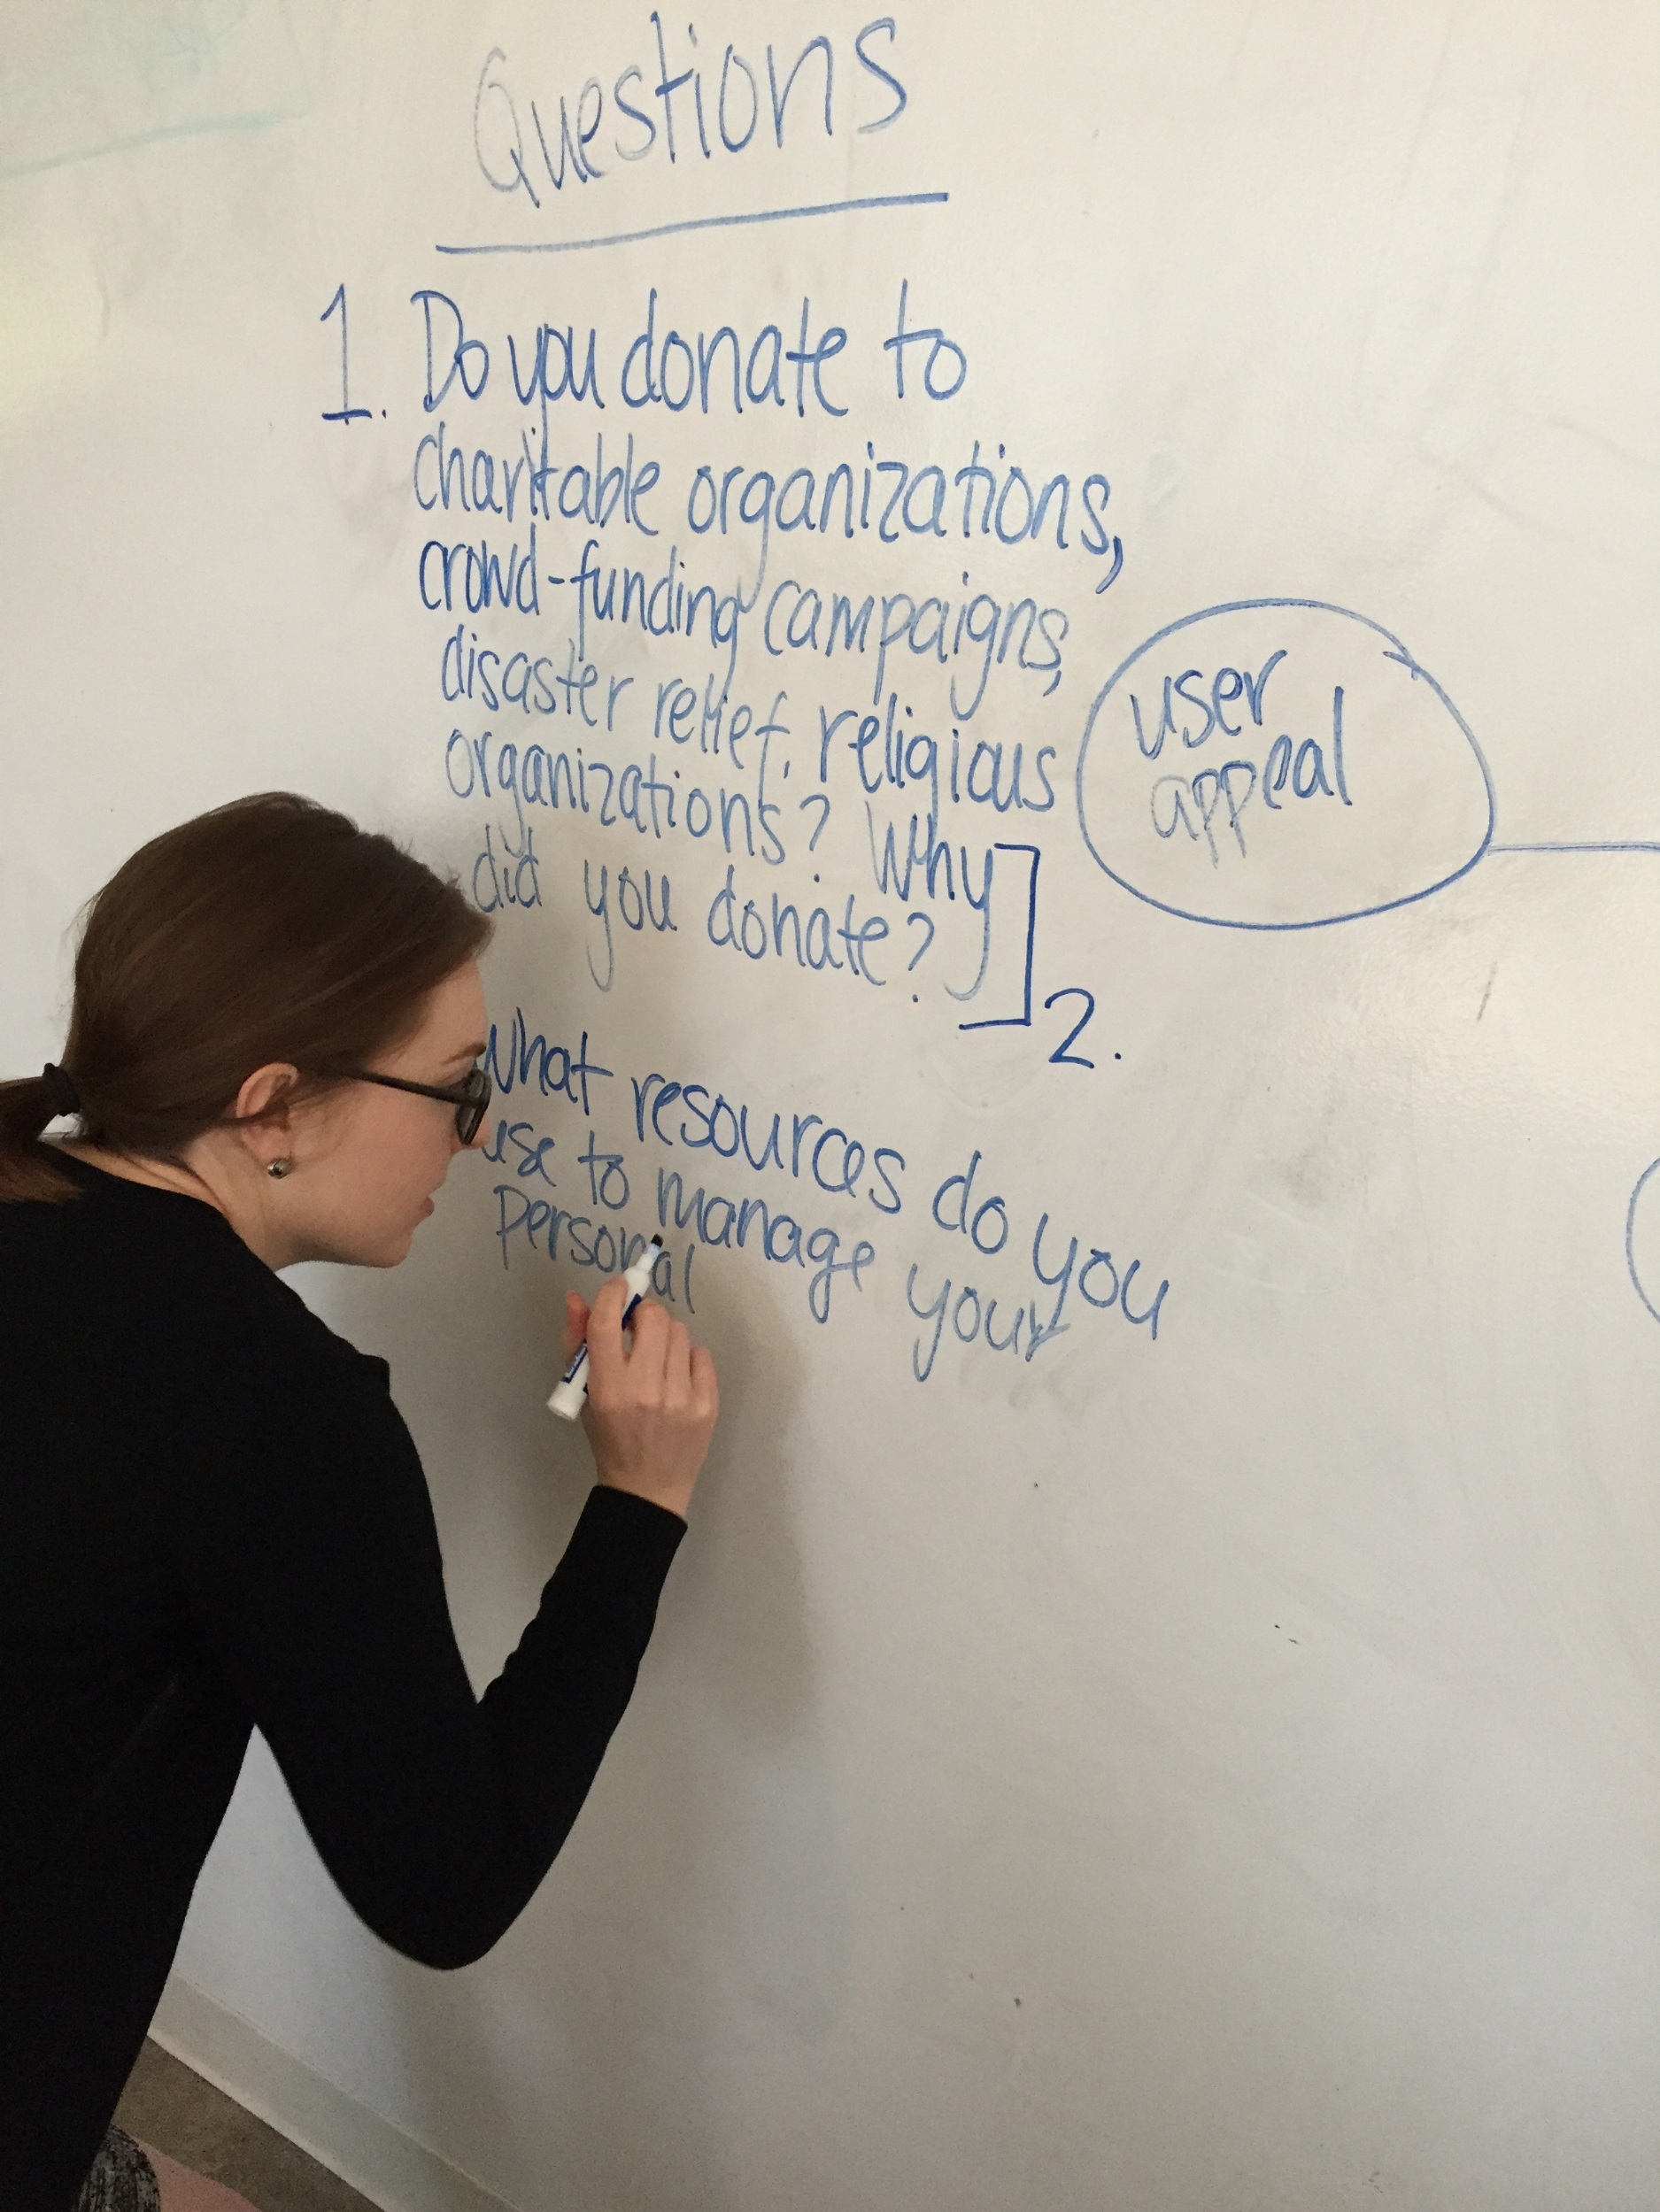 Questions
1. Do you donate to
charitable organizations,
crowd-funding campaigns,
disaster relief, religious
organizations? Why
did you donate?
2.
What resources do you
use to manage your
Personal
user
appeal